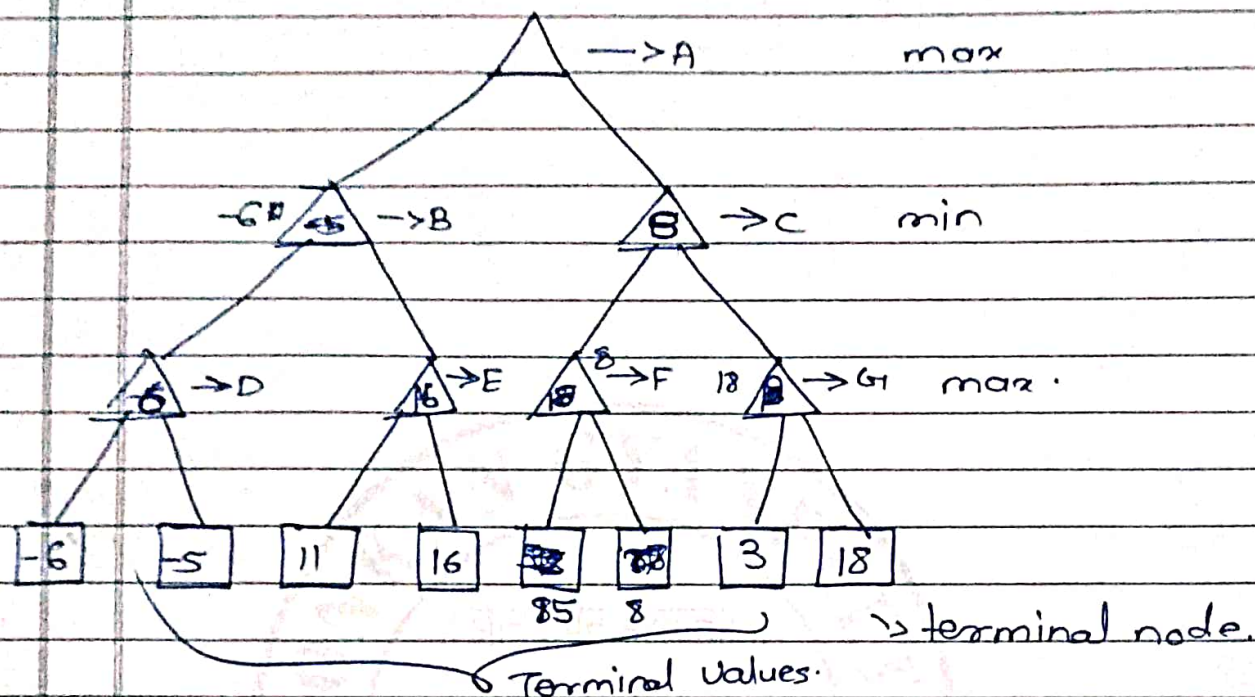 ->A max
-6 -5 ->B 8 ->C min
->D 16 ->E 8 ->F 18 ->G max.
-6 -5 11 16 3 18
85 8
terminal node.
Terminal values.